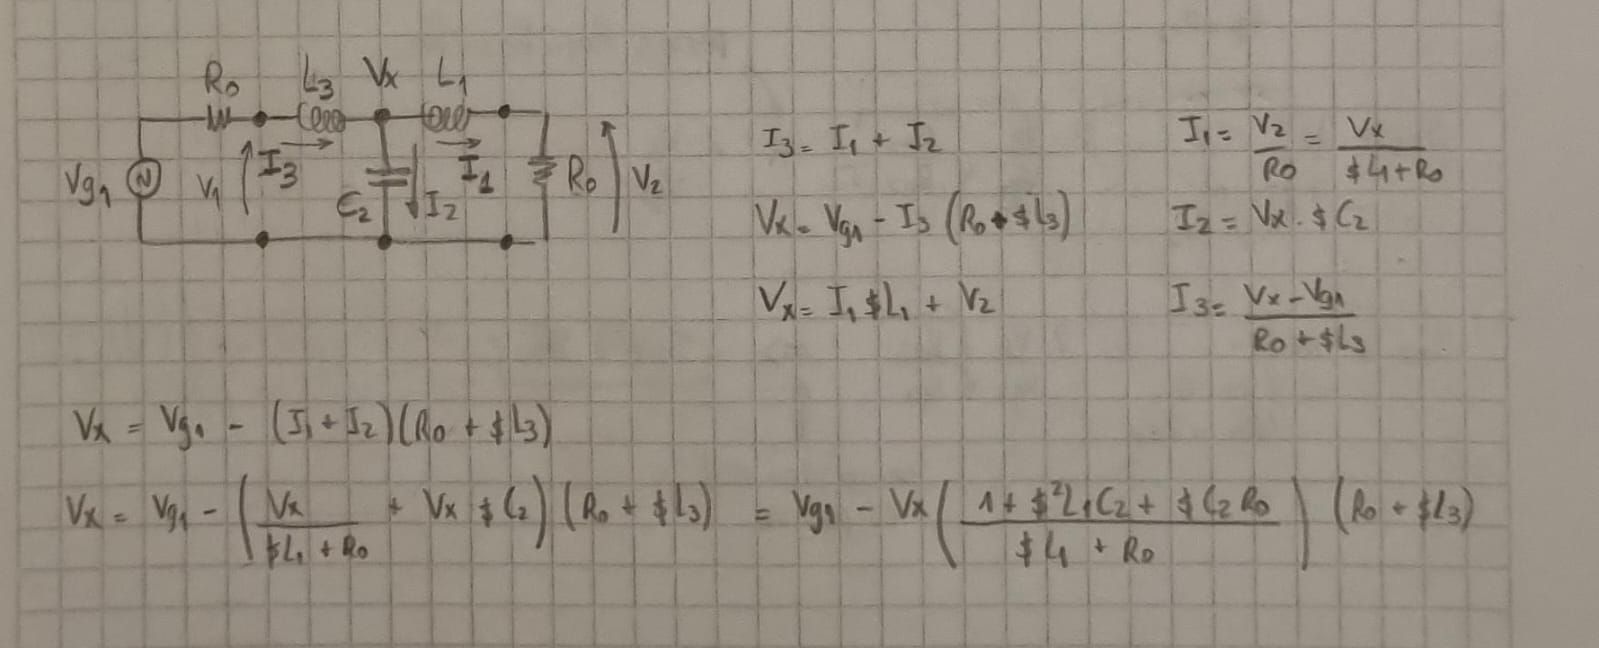 R0 L3 Vx L1
Vg1 V1 I3 C2 I2 I1 R0 V2
I3 = I1 + I2
Vx = Vg1 - I3 (R0 + $L3)
Vx = I1 $L1 + V2
I1 = V2/R0 = Vx/($L1 + R0)
I2 = Vx · $C2
I3 = (Vx - Vg1)/(R0 + $L3)
Vx = Vg1 - (I1 + I2)(R0 + $L3)
Vx = Vg1 - (Vx/($L1 + R0) + Vx $C2)(R0 + $L3) = Vg1 - Vx((1 + $²L1C2 + $C2R0)/($L1 + R0))(R0 + $L3)